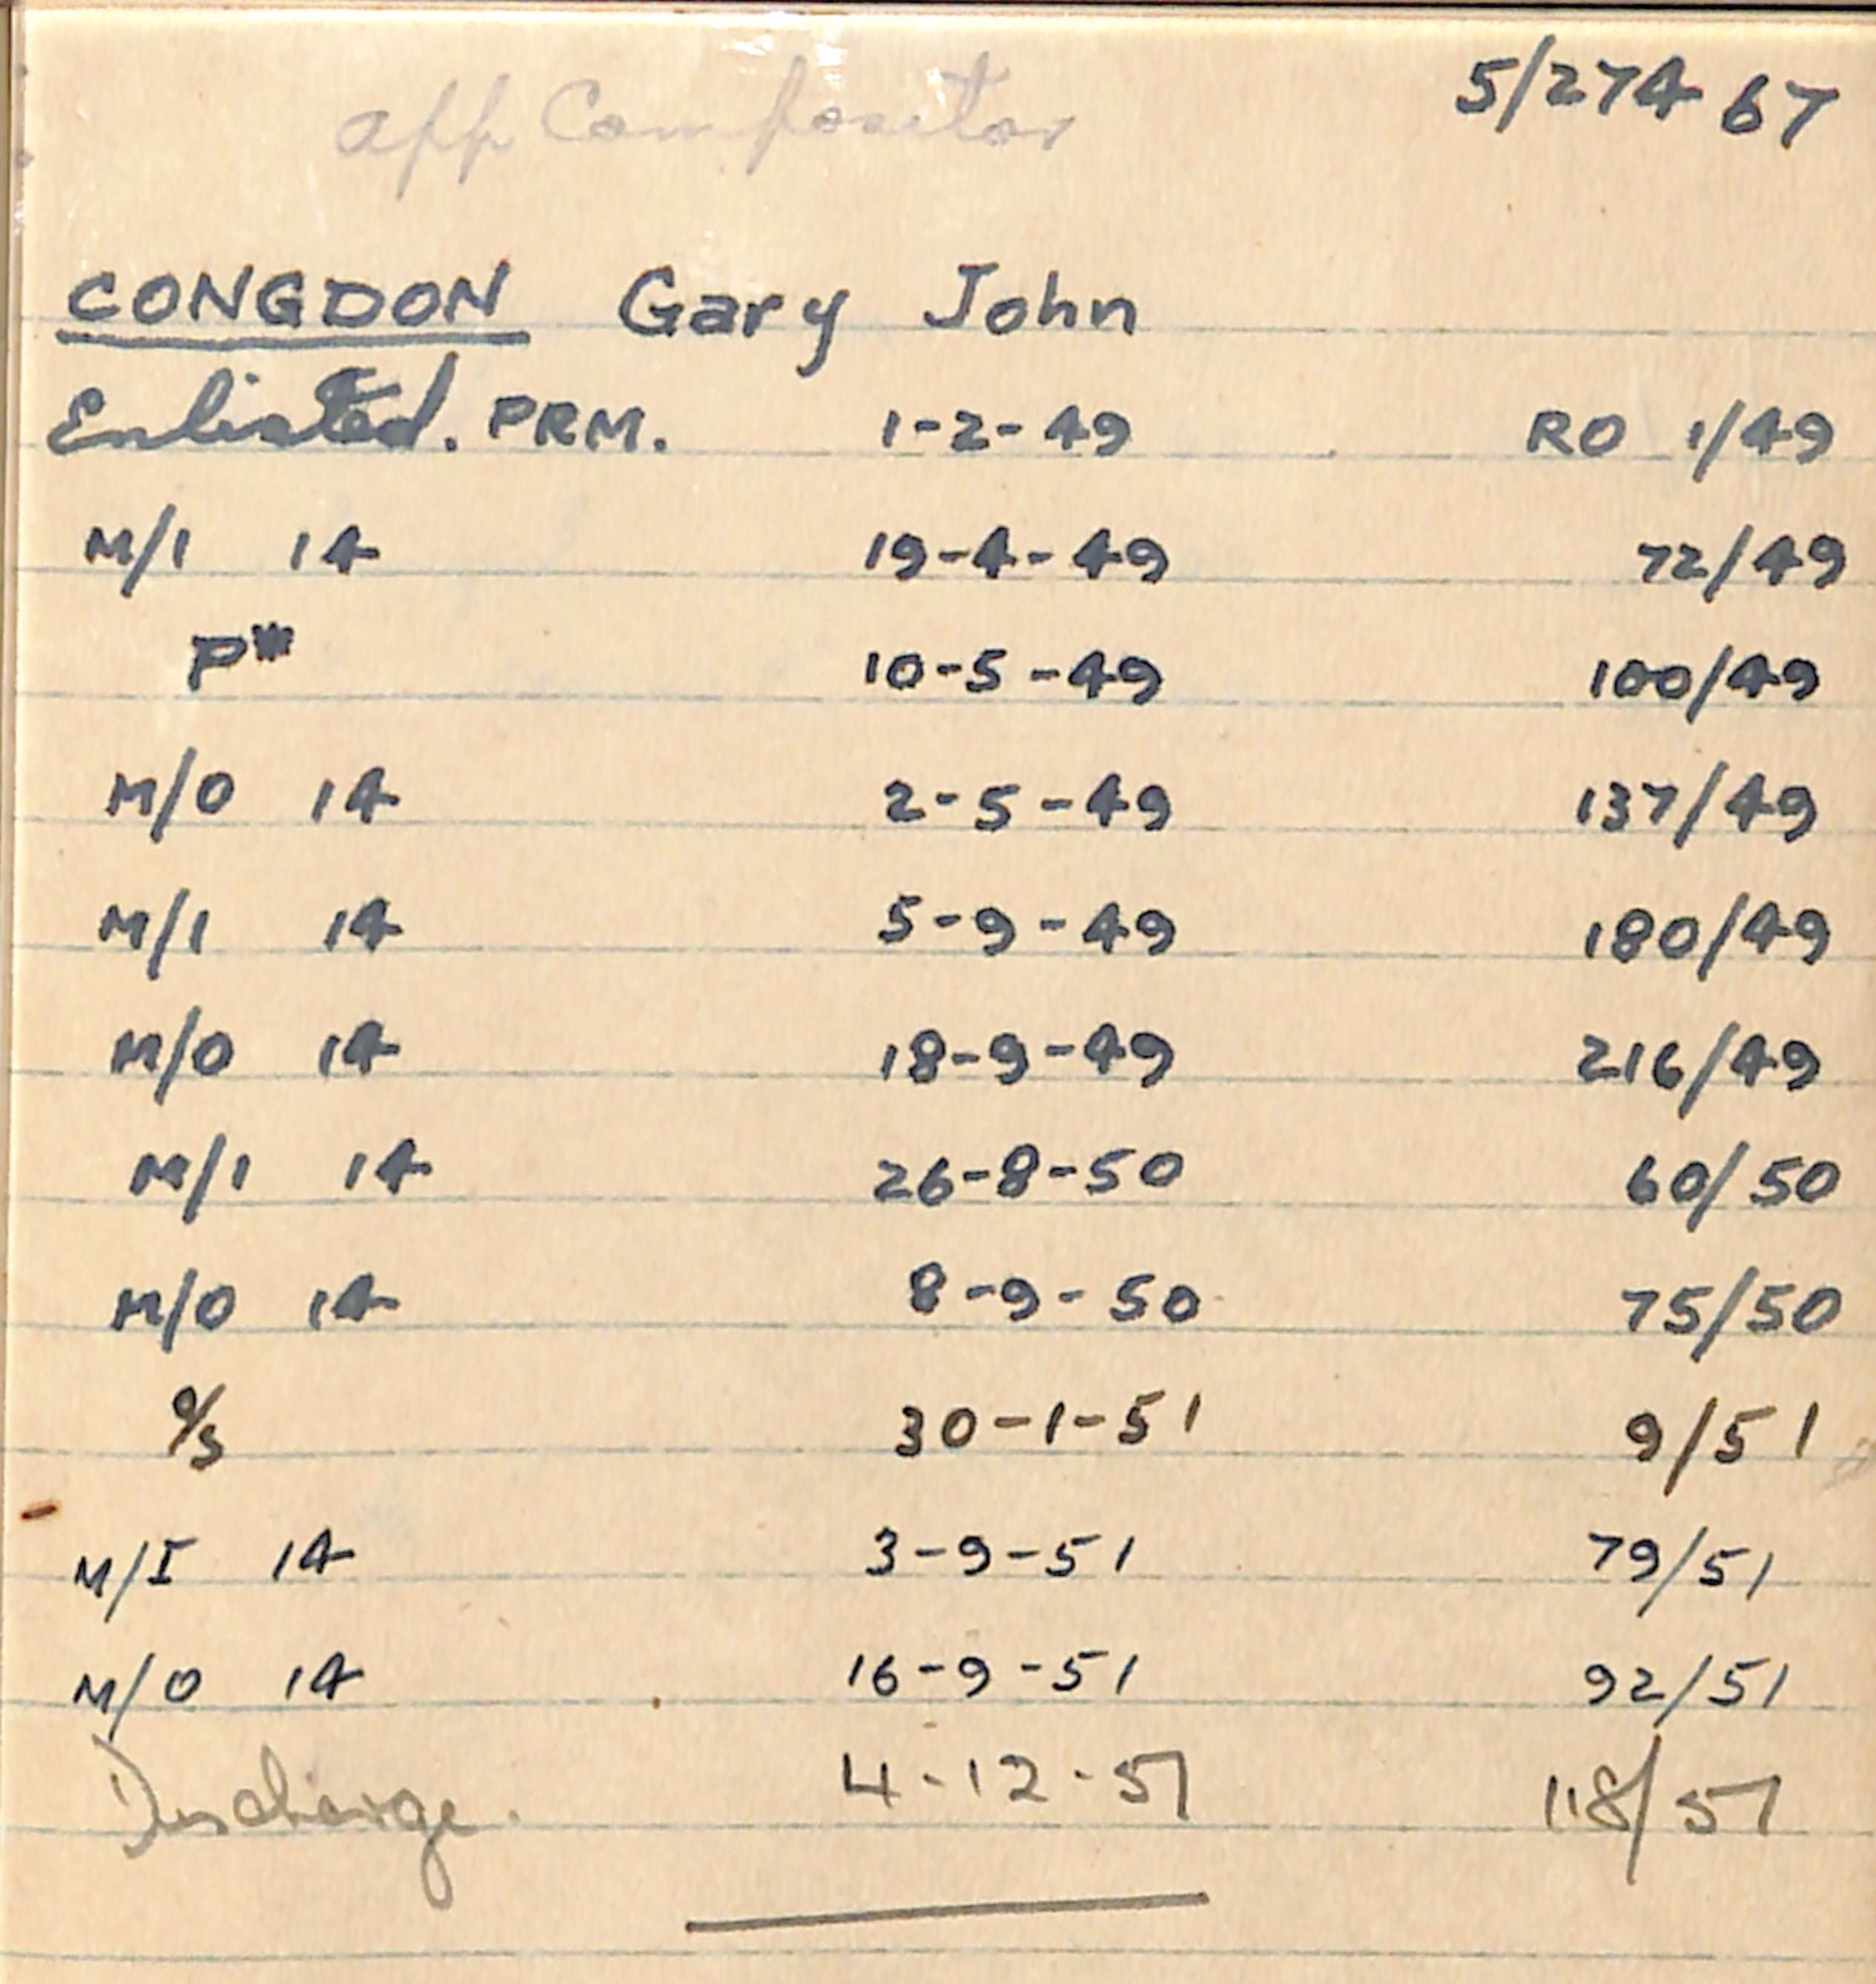 app Compositor 5/274 67
CONGDON Gary John
Enlisted. PRM. 1-2-49 RO 1/49
M/1 14 19-4-49 72/49
P* 10-5-49 100/49
M/O 14 2-5-49 137/49
M/1 14 5-9-49 180/49
M/O 14 18-9-49 216/49
M/1 14 26-8-50 60/50
M/O 14 8-9-50 75/50
O/S 30-1-51 9/51
M/I 14 3-9-51 79/51
M/O 14 16-9-51 92/51
Discharge. 4-12-51 118/51